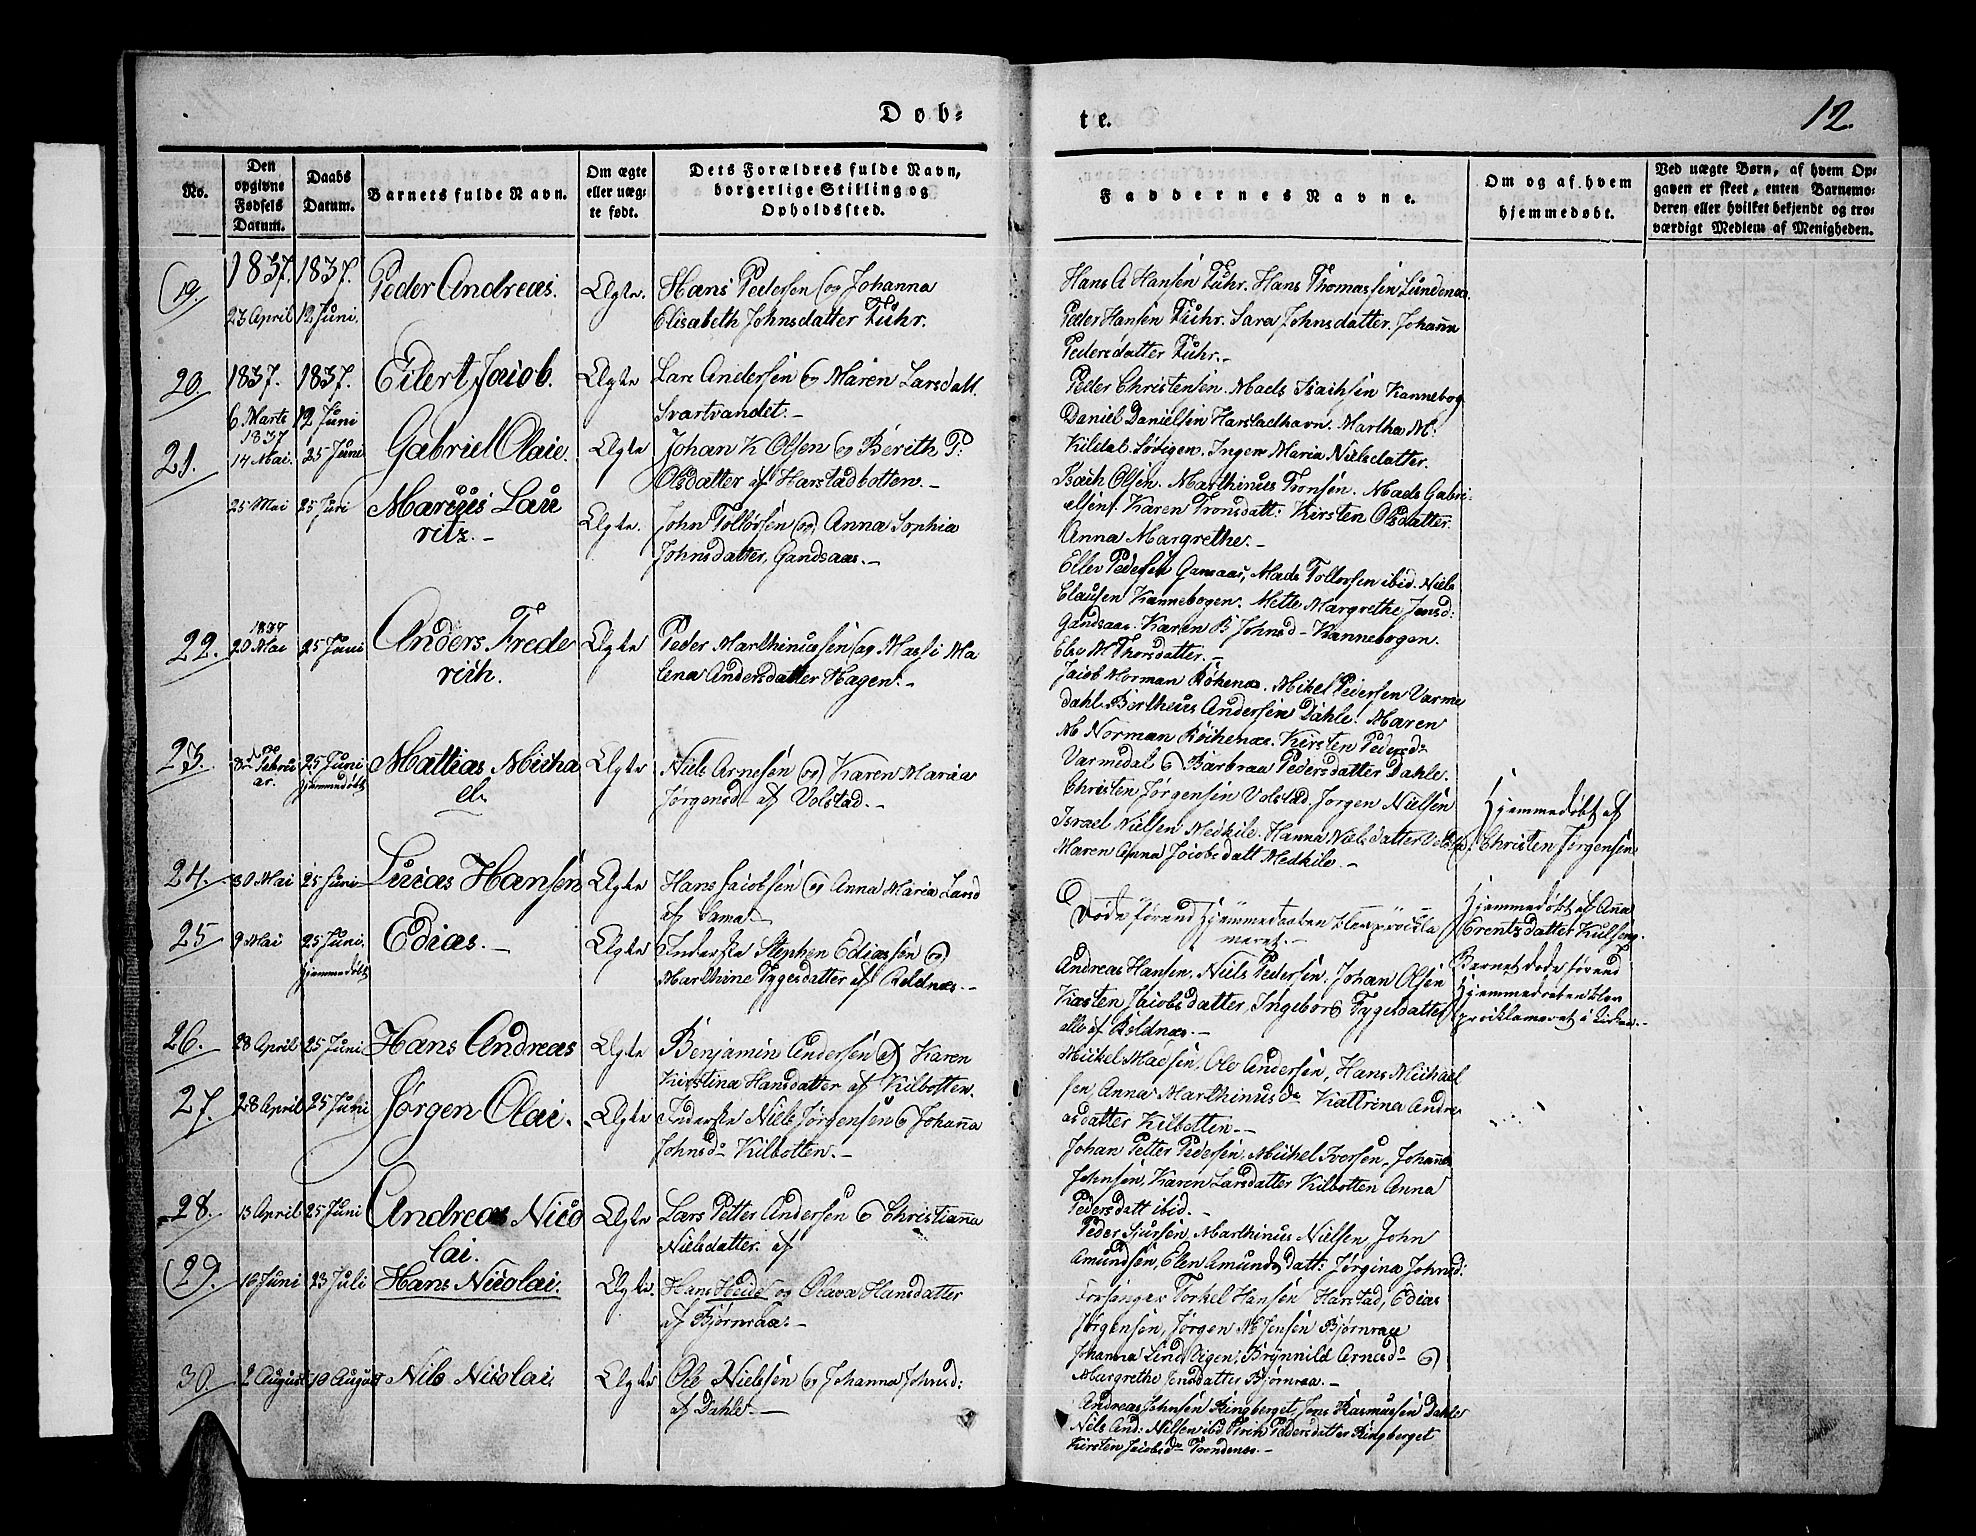 Døb-
te.
12.
No.
Den opgivne Fødsels Datum.
Daabs Datum.
Barnets fulde Navn.
Om ægte eller uægte født.
Dets Forældres fulde Navn, borgerlige Stilling og Opholdssted.
Faddernes Navne.
Om og af hvem hjemmedøbt.
Ved uægte Børn, af hvem Opgaven er skeet, enten Barnemoderen eller hvilket bekjendt og troværdigt Medlem af Menigheden.
19. 1837. 1837. Peder Andreas. Ægte. Hans Pedersen og Johanna
23 April 12 Juni. Elisabeth Johnsdatter Fuhr.
Hans A Hansen Fuhr. Hans Thomassen Lundenes.
Peder Hansen Fuhr. Sara Johnsdatter. Johanna
Pedersdatter Fuhr.-
20. 1837. 1837. Eilert Jacob. Ægte Lars Andersen og Maren Larsdatt.
6 Marts 12 Juni Svartvandet.-
Peder Christensen. Mads Isachsen Kannebog.
Daniel Danielsen Harstadhavn. Martha M:
Kildal. Inger Maria Nielsdatter.
21. 1837
14 Mai. 25 Juni Gabriel Olaie. Ægte Johan K Olsen og Berith P:
Olsdatter af Harstadbotten.-
Isach Olsen. Marthinus Tronsen. Mads Gabri-
elsen. Karen Tronsdatt: Kirsten Olsdatter.
Anna Margrethe.-
25 Mai 25 Juni Marius Lau
ritz.- Ægte. John Tollorsen og Anna Sophia
Johnsdatter, Gandsaas.-
Eller Pedersen Gansaas, Mads Tollorsen ibid. Niels
Clausen Kannebogen. Mette Margrethe Jensd:
Gandsaas. Karen B Johnsd- Kannebogen.
Else M Thorsdatter.-
22. 1837
20 Mai 25 Juni Anders Frede
rich. Ægte Peder Marthinussen og Massi Ma
lena Andersdatter Hagen.-
Jacob Norman Røkenes. Mikel Pedersen Varme
dahl. Birtheus Andersen Dahle. Maren
M Norman Røchenæs. Kirsten Pedersd-
Varmedal og Barbraa Pedersdatter Dahle.
23. Februar. 25 Juni hjemmedøbt Mattias Micha
el. Ægte Niels Arnesen og Karen Maria
Jørgensd- af Volstad.-
Christen Jørgensen Volstad. Jørgen Nielsen
Israel Nielsen Medkile. Hanna Nielsdatter
Maren Anna Jacobsdatt Medkile.-
Hjemmedøbt af
Christen Jørgensen.
24. 30 Mai 25 Juni Lucas Hansen Ægte Hans Jacobsen og Anna Maria Larsd
af Sama
Døde førend Hjemmedaaben blev procla
meret.-
Hjemmedøbt af Anna
Erentzdatter
25 9 Mai 25 Juni. hjemmedøbt Edias.- Ægte Inderste Stephen Ediassen og
Marthine Tygesdatter af Aldnæs.-
Andreas Hansen. Niels Pedersen. Johan Olsen
Kirsten Jacobsdatter, Ingeborg Tygesdatter
alle af
Barnet døde førend
Hjemmedaaben blev
proclameret i Kirken.-
26. 28 April 25 Juni Hans Andreas Ægte Benjamin Andersen og Karen
Kirstina Hansdatter af Kilbotten.
Mickel Madsen, Ole Andersen, Hans Michael
sen, Anna Marthinusd- Kattrina Andre
asdatter Kilbotten.-
27. 28 April 25 Juni Jørgen Olai. Ægte Inderste Niels Jørgensen og Johanna
Johnsd- Kilbotten.-
Johan Petter Pedersen, Mickel Iversen, Johannes
Johnsen, Karen Larsdatter Kilbotten Anna
Pedersdatt ibid.-
28. 13 April 25 Juni Andreas Nico
lai. Ægte Lars Petter Andersen og Christianna
Nielsdatter. af
Peder Sjursen, Marthinus Nielsen, John
Amundsen, Elen Amundsdatt: Jørgina Johnsd:
29. 10 Juni 23 Juli Hans Nicolai. Ægte. Hans Heide og Olava Hansdatter
af Bjørnraa.-
Torkel Hansen Harstad, Edias
Jørgensen, Jørgen M Jensen Bjørnraae
Johanna Lind Vigen, Brynnild Arnesd- og
Margrethe Jensdatter Bjørnraa.-
30. 2 August 19 August Nils Nicolai. Ægte Ole Nielsen og Johanna Johnsd:
af Dahle.-
Andreas Johnsen Ringberget, Jens Rasmussen Dahle
Nils And: Nilsen ibid Pedersdatter Ringberget
Kirsten Jacobsd- Trondenes.-